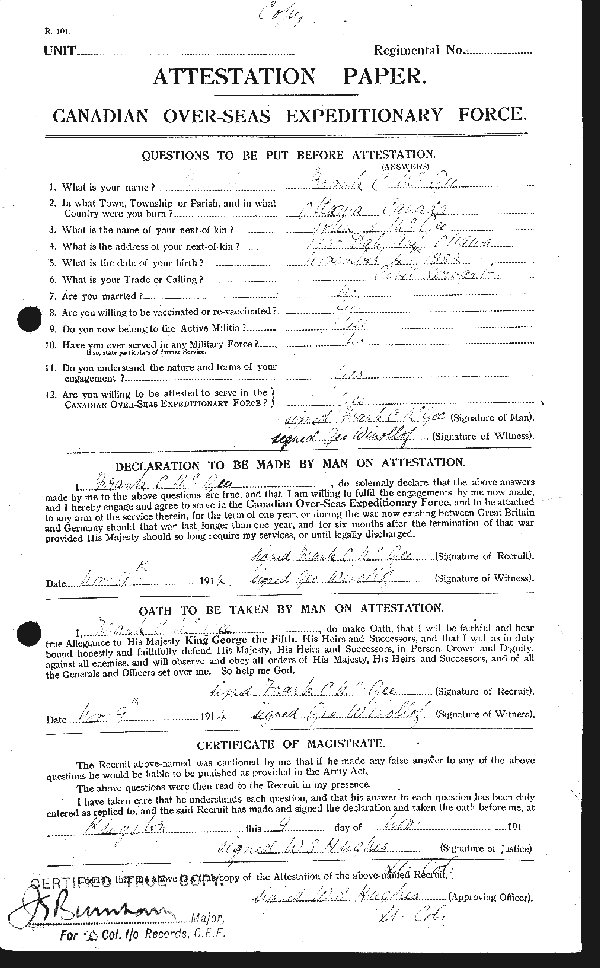 Copy
R. 101.
UNIT
Regimental No.
ATTESTATION PAPER.
CANADIAN OVER-SEAS EXPEDITIONARY FORCE.
QUESTIONS TO BE PUT BEFORE ATTESTATION.
(ANSWERS)
1. What is your name? Frank C. McGee
2. In what Town, Township or Parish, and in what
Country were you born? Ottawa
3. What is the name of your next-of-kin? McGee
4. What is the address of your next-of-kin? Ottawa
5. What is the date of your birth?
6. What is your Trade or Calling? Civil Servant
7. Are you married?
8. Are you willing to be vaccinated or re-vaccinated?
9. Do you now belong to the Active Militia?
10. Have you ever served in any Military Force?
If so, state particulars of former Service.
11. Do you understand the nature and terms of your
engagement? Yes
12. Are you willing to be attested to serve in the
CANADIAN OVER-SEAS EXPEDITIONARY FORCE? Yes
signed Frank C McGee (Signature of Man).
signed Geo (Signature of Witness).
DECLARATION TO BE MADE BY MAN ON ATTESTATION.
I, Frank C McGee, do solemnly declare that the above answers
made by me to the above questions are true, and that I am willing to fulfil the engagements by me now made,
and I hereby engage and agree to serve in the Canadian Over-Seas Expeditionary Force, and to be attached
to any arm of the service therein, for the term of one year, or during the war now existing between Great Britain
and Germany should that war last longer than one year, and for six months after the termination of that war
provided His Majesty should so long require my services, or until legally discharged.
signed Frank C McGee (Signature of Recruit).
Date Nov 9th 1914 signed Geo (Signature of Witness).
OATH TO BE TAKEN BY MAN ON ATTESTATION.
I, Frank C McGee, do make Oath, that I will be faithful and bear
true Allegiance to His Majesty King George the Fifth, His Heirs and Successors, and that I will as in duty
bound honestly and faithfully defend His Majesty, His Heirs and Successors, in Person, Crown and Dignity,
against all enemies, and will observe and obey all orders of His Majesty, His Heirs and Successors, and of all
the Generals and Officers set over me. So help me God.
signed Frank C McGee (Signature of Recruit).
Date Nov 9th 1914 signed Geo (Signature of Witness).
CERTIFICATE OF MAGISTRATE.
The Recruit above-named was cautioned by me that if he made any false answer to any of the above
questions he would be liable to be punished as provided in the Army Act.
The above questions were then read to the Recruit in my presence.
I have taken care that he understands each question, and that his answer to each question has been duly
entered as replied to, and the said Recruit has made and signed the declaration and taken the oath before me, at
Kingston this 9 day of Nov 191
signed W S Hughes (Signature of Justice)
Lt Col
I certify that the above is a true copy of the Attestation of the above-named Recruit.
CERTIFIED TRUE COPY.
signed W S Hughes (Approving Officer).
Lt Col
Burnham Major,
For Lt. Col. i/o Records, C.E.F.